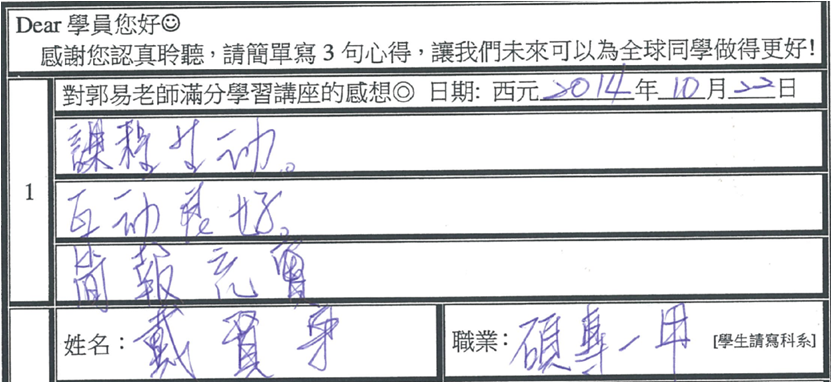 Dear 學員您好☺
感謝您認真聆聽，請簡單寫 3 句心得，讓我們未來可以為全球同學做得更好!
對郭易老師滿分學習講座的感想◎ 日期: 西元 2014 年 10 月 22 日
1
課程生動。
互動良好。
簡報充實
姓名：戴賢
職業：碩專一甲 [學生請寫科系]